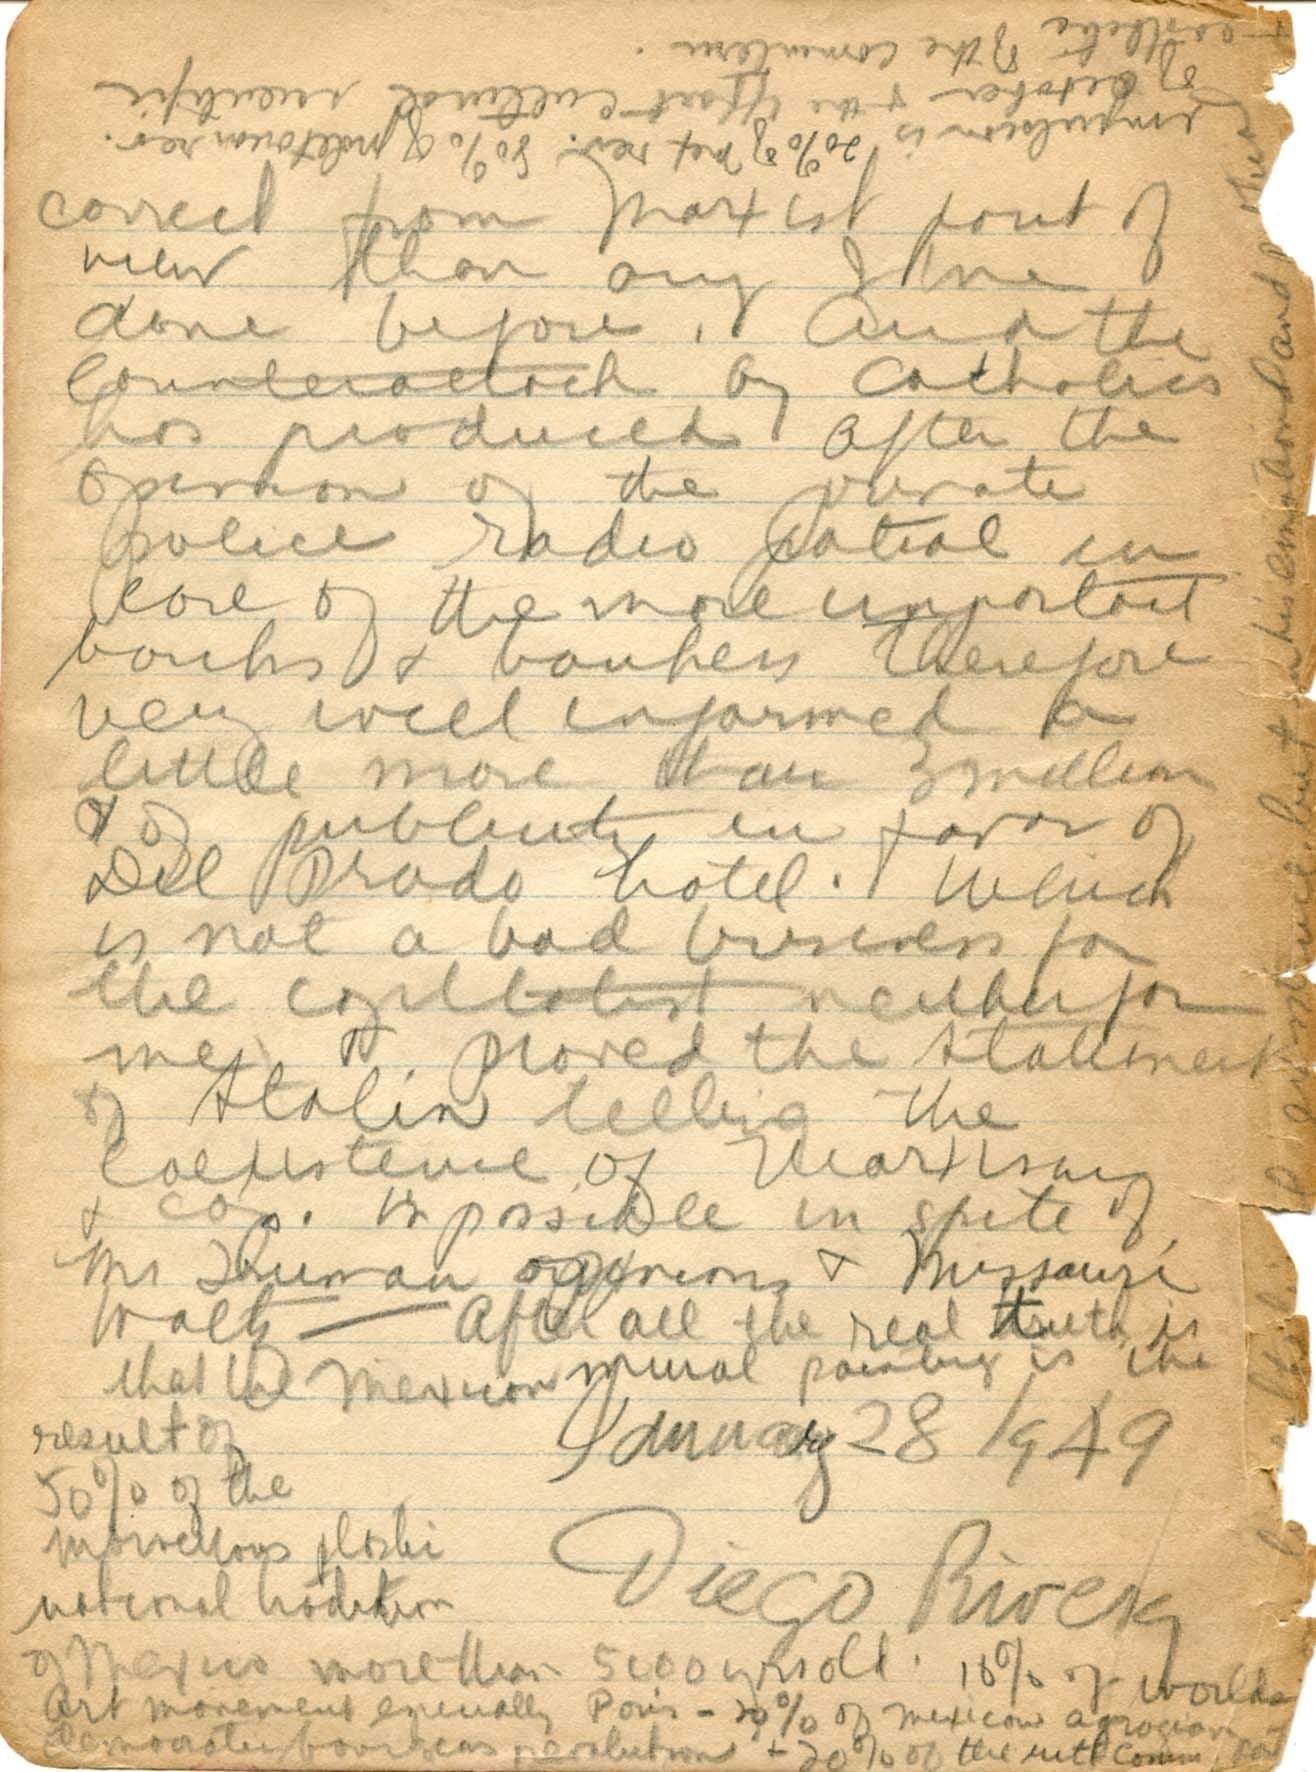 correct from Marxist point of
view than any I've
done before. And the
Counterattack by Catholics
has produced after the
opinion of the private
police radio patrol in
care of the more important
banks & bankers therefore
very well informed a
little more than 3 million
of publicity in favor of
Del Prado hotel. Which
is not a bad business for
the capitalist neither for
me. proved the statement
of Stalin telling the
coexistence of Marxism
& cap. is possible in spite of
Mr Truman opinions & Missouri
waltz — After all the real truth is
that the Mexican mural painting is the
result of
50% of the
marvellous plastic
national tradition
of Mexico more than 5000 yrs old. 10% of worlds
Art movement especially Paris - 20% of mexican agrarian
Democratic bourgeois revolution + 20% of the
January 28 1949
Diego Rivera
is 20% of mex rev. 80% of rev.
of october & the effort cultural scientific
+ esthetic of the comintern.